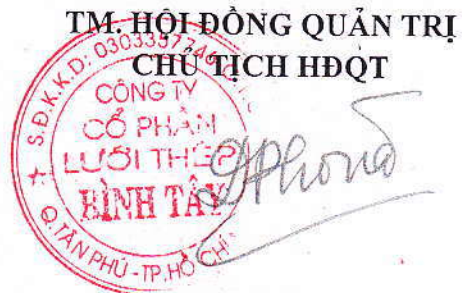 TM. HỘI ĐỒNG QUẢN TRỊ
CHỦ TỊCH HĐQT
S.Đ.K.K.D: 0303357
CÔNG TY
CỔ PHẦN
LƯỚI THÉP
BÌNH TÂY
Q. TÂN PHÚ - TP. HỒ CHÍ